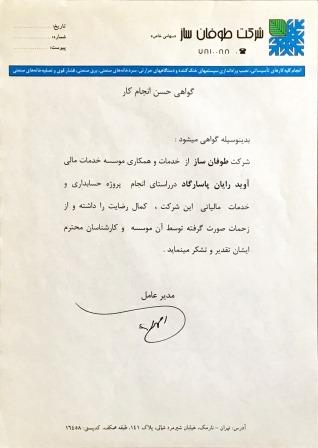 تاریخ:
شماره:
پیوست:
شرکت طوفان ساز (سهامی خاص)
☎ ۷۸۱۰۰۸۸
انجام کلیه کارهای تأسیساتی، نصب و راه‌اندازی سیستمهای خنک کننده و دستگاههای حرارتی، سردخانه‌های صنعتی، برق صنعتی، فشار قوی و تصفیه‌خانه‌های صنعتی
گواهی حسن انجام کار
بدینوسیله گواهی میشود :
شرکت طوفان ساز از خدمات و همکاری موسسه خدمات مالی
آوید رایان پاسارگاد درراستای انجام پروژه حسابداری و
خدمات مالیاتی این شرکت ، کمال رضایت را داشته و از
زحمات صورت گرفته توسط آن موسسه و کارشناسان محترم
ایشان تقدیر و تشکر مینماید .
مدیر عامل
آدرس: تهران - نارمک، خیابان شیرمرد شمالی، پلاک ۱۴۱، طبقه همکف، کدپستی: ۱۶۴۵۸